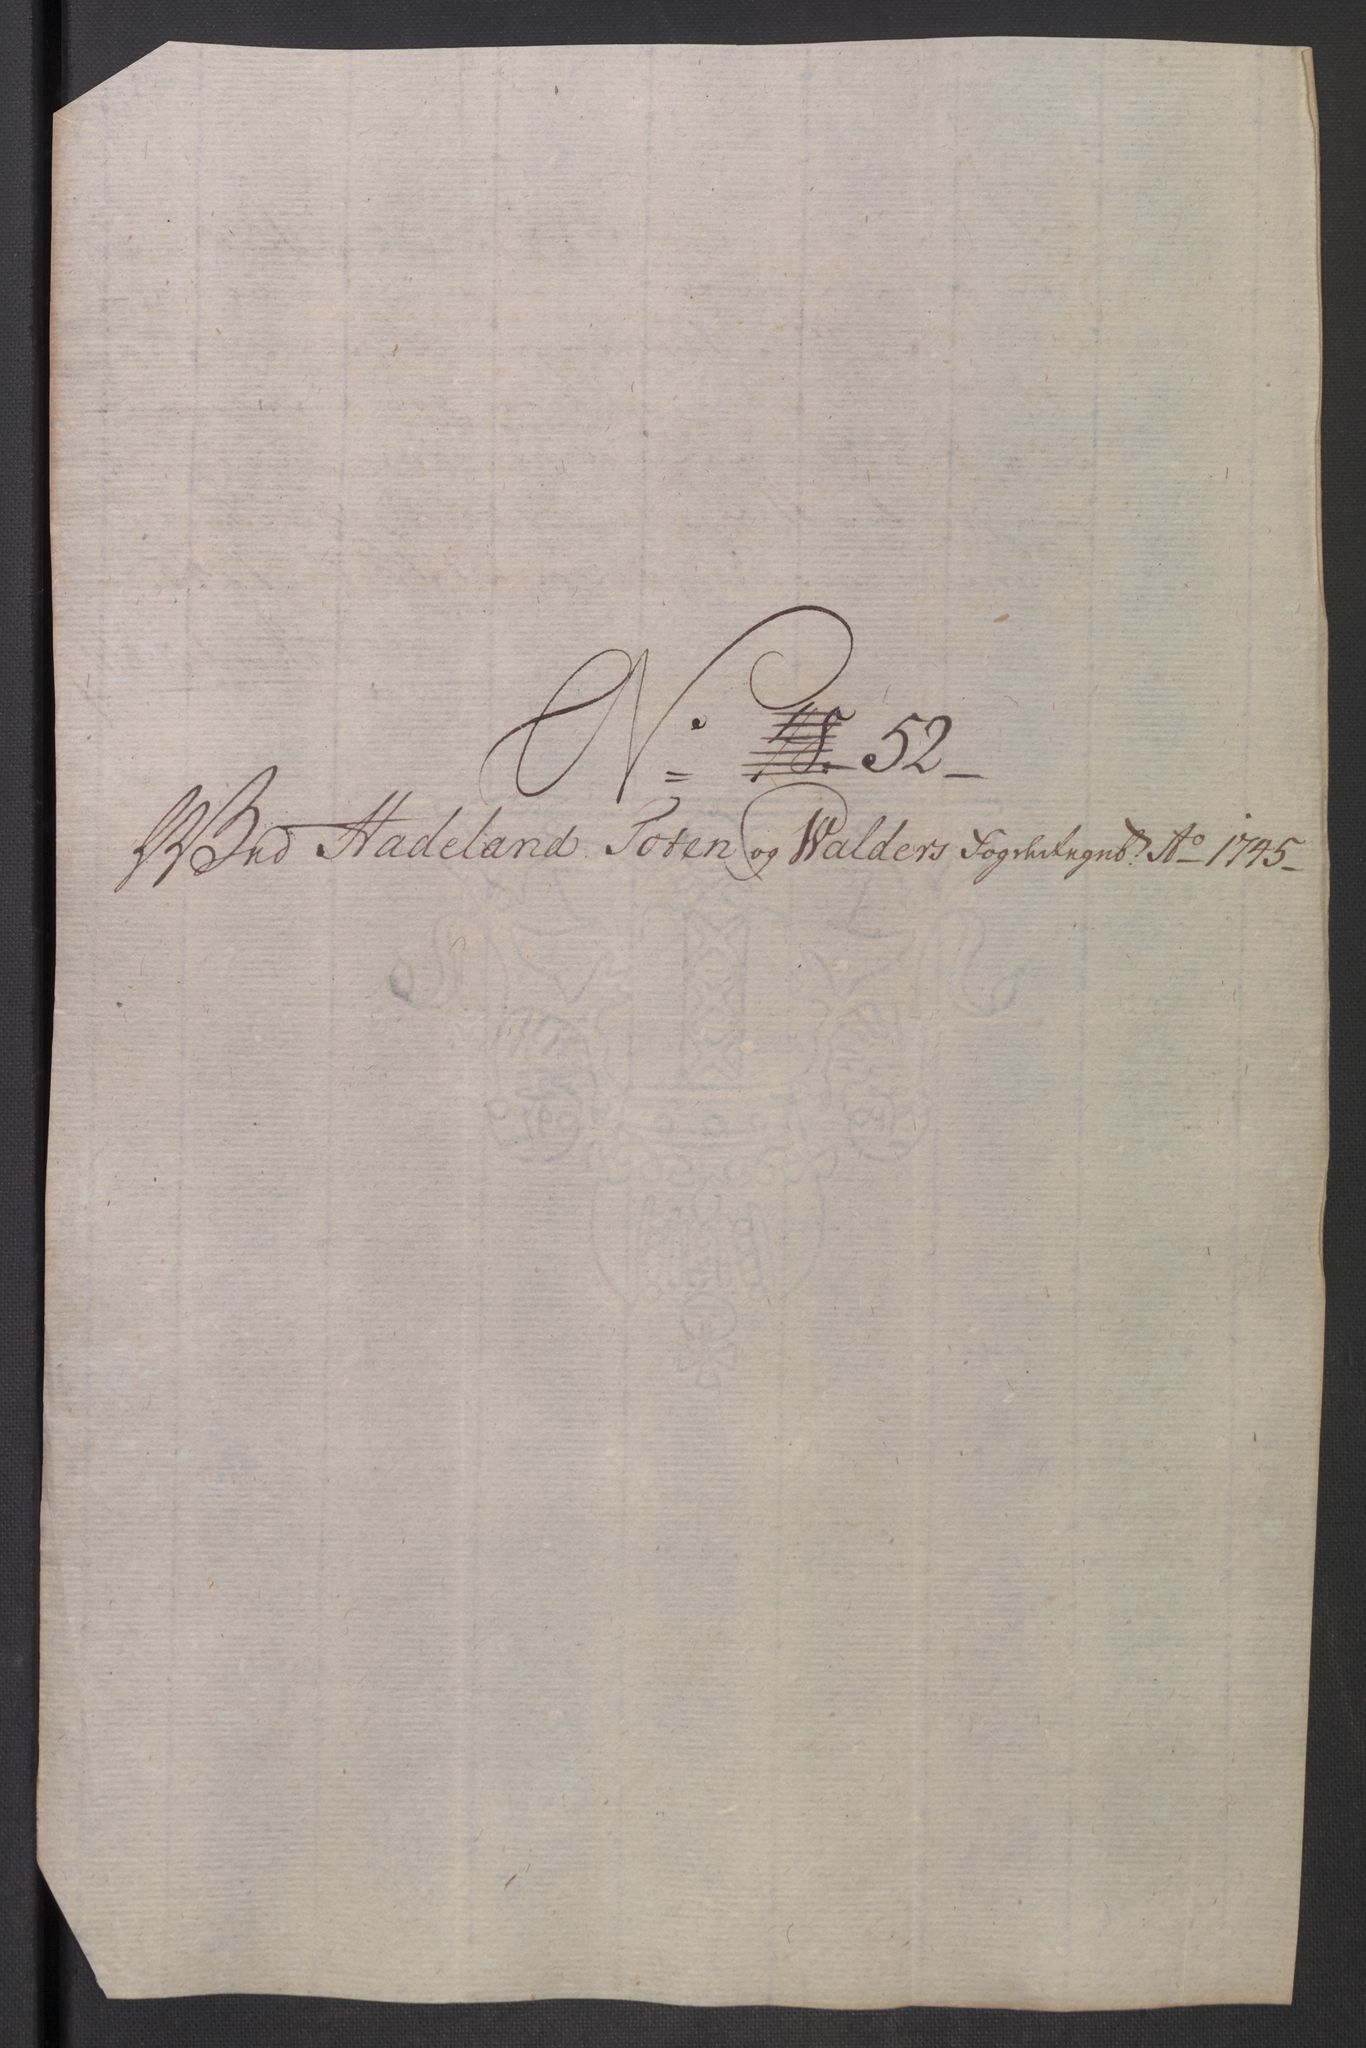 N: 52
Ved Hadeland Toten og Walders Fogd. Regnsk: Ao 1745